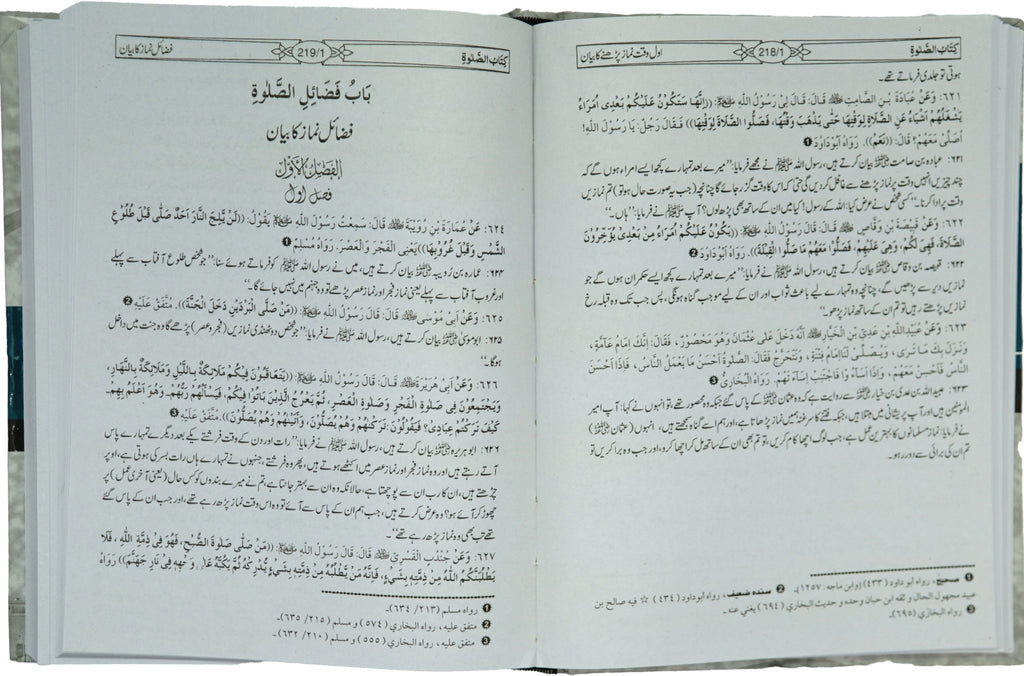 كِتَابُ الصَّلٰوةِ
218/1
اول وقت نماز پڑھنے کا بیان
ہوتی تو جلدی فرماتے تھے۔
٦٢١: وَعَنْ عُبَادَةَ بْنِ الصَّامِتِ ﷺ قَالَ: قَالَ لِيْ رَسُوْلُ اللّٰهِ ﷺ: ((اِنَّهَا سَتَكُوْنُ عَلَيْكُمْ بَعْدِيْ اُمَرَاءُ
يَشْغَلُهُمْ اَشْيَاءُ عَنِ الصَّلَاةِ لِوَقْتِهَا حَتّٰى يَذْهَبَ وَقْتُهَا، فَصَلُّوا الصَّلَاةَ لِوَقْتِهَا)) فَقَالَ رَجُلٌ: يَا رَسُوْلَ اللّٰهِ!
اُصَلِّيْ مَعَهُمْ؟ قَالَ: ((نَعَمْ)). رَوَاهُ اَبُوْدَاوٗدَ❶
٦٢١: عبادہ بن صامت ؓ بیان کرتے ہیں، رسول اللہ ﷺ نے مجھے فرمایا: ’’میرے بعد تمہارے کچھ ایسے امراء ہوں گے کہ
چند چیزیں انہیں وقت پر نماز پڑھنے سے غافل کر دیں گی حتی کہ اس کا وقت گزر جائے گا چنانچہ (جب یہ صورت حال ہو تو) تم نمازیں
وقت پر ادا کرنا۔‘‘ کسی شخص نے عرض کیا: اللہ کے رسول! کیا میں ان کے ساتھ بھی پڑھ لوں؟ آپ ﷺ نے فرمایا: ’’ہاں۔‘‘
٦٢٢: وَعَنْ قَبِيْصَةَ بْنِ وَقَّاصٍ ؓ قَالَ: قَالَ رَسُوْلُ اللّٰهِ ﷺ: ((يَكُوْنُ عَلَيْكُمْ اُمَرَاءُ مِنْ بَعْدِيْ يُؤَخِّرُوْنَ
الصَّلَاةَ، فَهِيَ لَكُمْ، وَهِيَ عَلَيْهِمْ، فَصَلُّوْا مَعَهُمْ مَا صَلُّوا الْقِبْلَةَ)). رَوَاهُ اَبُوْدَاوٗدَ❷
٦٢٢: قبیصہ بن وقاص ؓ بیان کرتے ہیں، رسول اللہ ﷺ نے فرمایا: ’’میرے بعد تمہارے کچھ ایسے حکمران ہوں گے جو
نمازیں دیر سے پڑھیں گے، چنانچہ وہ تمہارے لیے باعث ثواب اور ان کے لیے موجب گناہ ہوگی، پس جب تک وہ قبلہ رخ
نمازیں پڑھیں تو تم ان کے ساتھ نماز پڑھو۔‘‘
٦٢٣: وَعَنْ عُبَيْدِاللّٰهِ بْنِ عَدِيِّ بْنِ الْخِيَارِ ؓ اَنَّهٗ دَخَلَ عَلٰى عُثْمَانَ وَهُوَ مَحْصُوْرٌ، فَقَالَ: اِنَّكَ اِمَامُ عَامَّةٍ،
وَنَزَلَ بِكَ مَا تَرٰى، وَيُصَلِّيْ لَنَا اِمَامُ فِتْنَةٍ، وَنَتَحَرَّجُ فَقَالَ: الصَّلٰوةُ اَحْسَنُ مَا يَعْمَلُ النَّاسُ، فَاِذَا اَحْسَنَ
النَّاسُ فَاَحْسِنْ مَعَهُمْ، وَاِذَا اَسَآءُوْا فَاجْتَنِبْ اِسَآءَتَهُمْ. رَوَاهُ الْبُخَارِيُّ❸
٦٢٣: عبیداللہ بن عدی بن خیار ؓ سے روایت ہے کہ وہ عثمان ؓ کے پاس گئے جبکہ وہ محصور تھے، تو انہوں نے کہا: آپ امیر
المؤمنین ہیں اور آپ پریشانی میں مبتلا ہیں، جبکہ فتنے کا سرغنہ ہمیں نماز پڑھاتا ہے، اور ہم اسے گناہ سمجھتے ہیں، انہوں (عثمان ؓ)
نے فرمایا: نماز مسلمانوں کا بہترین عمل ہے، جب لوگ اچھا کام کریں، تو تم بھی ان کے ساتھ مل کر اچھا کرو، اور جب وہ برا کریں تو
تم ان کی برائی سے دور رہو۔
❶ صحیح، رواہ ابوداود (٤٣٣) [وابن ماجہ: ١٢٥٧]۔ ❷ سندہ ضعیف، رواہ ابوداود (٤٣٤) ☆ فیہ صالح بن
عبید مجہول الحال و ثقہ ابن حبان وحدہ و حدیث البخاری (٦٩٤) یغنی عنہ۔
❸ رواہ البخاری (٦٩٥)۔
كِتَابُ الصَّلٰوةِ
219/1
فضائل نماز کا بیان
بَابُ فَضَائِلِ الصَّلٰوةِ
فضائل نماز کا بیان
الفَصْلُ الْاَوَّلُ
فصل اول
٦٢٤: عَنْ عُمَارَةَ بْنِ رُوَيْبَةَ ؓ قَالَ: سَمِعْتُ رَسُوْلَ اللّٰهِ ﷺ يَقُوْلُ: ((لَنْ يَّلِجَ النَّارَ اَحَدٌ صَلّٰى قَبْلَ طُلُوْعِ
الشَّمْسِ وَقَبْلَ غُرُوْبِهَا)) يَعْنِي الْفَجْرَ وَالْعَصْرَ. رَوَاهُ مُسْلِمٌ❶
٦٢٤: عمارہ بن رویبہ ؓ بیان کرتے ہیں، میں نے رسول اللہ ﷺ کو فرماتے ہوئے سنا: ’’جو شخص طلوع آفتاب سے پہلے
اور غروب آفتاب سے پہلے یعنی نماز فجر اور نماز عصر پڑھے تو وہ جہنم میں نہیں جائے گا۔‘‘
٦٢٥: وَعَنْ اَبِيْ مُوْسٰى ؓ قَالَ: قَالَ رَسُوْلُ اللّٰهِ ﷺ: ((مَنْ صَلَّى الْبَرْدَيْنِ دَخَلَ الْجَنَّةَ)). مُتَّفَقٌ عَلَيْهِ❷
٦٢٥: ابوموسیٰ ؓ بیان کرتے ہیں، رسول اللہ ﷺ نے فرمایا: ’’جو شخص دو ٹھنڈی نمازیں (فجر و عصر) پڑھے گا وہ جنت میں داخل
ہوگا۔‘‘
٦٢٦: وَعَنْ اَبِيْ هُرَيْرَةَ ؓ قَالَ: قَالَ رَسُوْلُ اللّٰهِ ﷺ: ((يَتَعَاقَبُوْنَ فِيْكُمْ مَلَائِكَةٌ بِاللَّيْلِ وَمَلَائِكَةٌ بِالنَّهَارِ،
وَيَجْتَمِعُوْنَ فِيْ صَلٰوةِ الْفَجْرِ وَصَلٰوةِ الْعَصْرِ، ثُمَّ يَعْرُجُ الَّذِيْنَ بَاتُوْا فِيْكُمْ، فَيَسْاَلُهُمْ رَبُّهُمْ- وَهُوَ اَعْلَمُ بِهِمْ-
كَيْفَ تَرَكْتُمْ عِبَادِيْ؟ فَيَقُوْلُوْنَ: تَرَكْنٰهُمْ وَهُمْ يُصَلُّوْنَ، وَاَتَيْنٰهُمْ وَهُمْ يُصَلُّوْنَ)). مُتَّفَقٌ عَلَيْهِ❸
٦٢٦: ابوہریرہ ؓ بیان کرتے ہیں، رسول اللہ ﷺ نے فرمایا: ’’رات اور دن کے وقت فرشتے یکے بعد دیگرے تمہارے پاس
آتے رہتے ہیں اور وہ نماز فجر اور نماز عصر میں اکٹھے ہوتے ہیں، پھر وہ فرشتے، جنہوں نے تمہارے ہاں رات بسر کی ہوتی ہے، اوپر
چڑھتے ہیں، ان کا رب ان سے پوچھتا ہے، حالانکہ وہ ان سے بہتر جانتا ہے، تم نے میرے بندوں کو کس حال (یعنی آخری عمل) پر
چھوڑ کر آئے ہو؟ وہ عرض کرتے ہیں، جب ہم ان کے پاس سے آئے تو وہ اس وقت نماز پڑھ رہے تھے، اور جب ان کے پاس گئے
تھے تب بھی وہ نماز پڑھ رہے تھے‘‘۔
٦٢٧: وَعَنْ جُنْدُبٍ الْقَسْرِيِّ ؓ قَالَ: قَالَ رَسُوْلُ اللّٰهِ ﷺ: ((مَنْ صَلّٰى صَلٰوةَ الصُّبْحِ، فَهُوَ فِيْ ذِمَّةِ اللّٰهِ، فَلَا
يَطْلُبَنَّكُمُ اللّٰهُ مِنْ ذِمَّتِهٖ بِشَيْءٍ، فَاِنَّهٗ مَنْ يَّطْلُبْهُ مِنْ ذِمَّتِهٖ بِشَيْءٍ يُّدْرِكْهُ ثُمَّ يَكُبَّهٗ عَلٰى وَجْهِهٖ فِيْ نَارِ جَهَنَّمَ)) رَوَاهُ
❶ رواہ مسلم (٢١٣/ ٦٣٤)۔
❷ متفق علیہ، رواہ البخاری (٥٧٤) و مسلم (٢١٥/ ٦٣٥)۔
❸ متفق علیہ، رواہ البخاری (٥٥٥) و مسلم (٢١٠/ ٦٣٢)۔